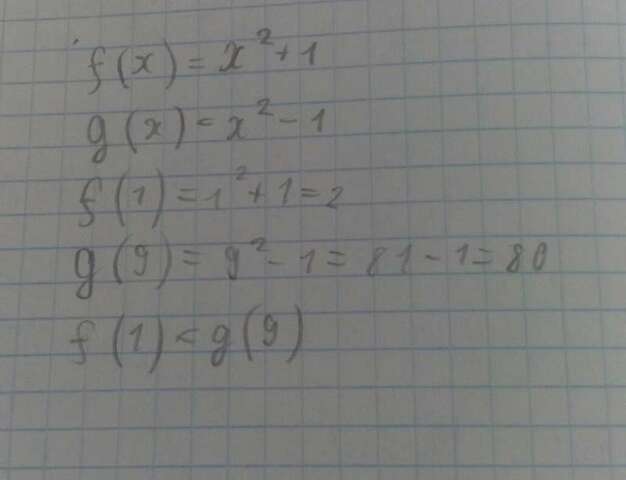 f(x) = x² + 1
g(x) = x² - 1
f(1) = 1² + 1 = 2
g(9) = 9² - 1 = 81 - 1 = 80
f(1) < g(9)